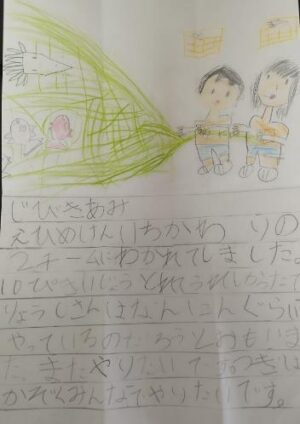 じびきあみ
えひめけん いちかわ りの
2チームにわかれてしました。
10ぴきいじょうとれてうれしかったで
りょうしさんはなんにんぐらい
やっているのだろうとおもいま
た。またやりたいです。つぎは
かぞくみんなでやりたいです。